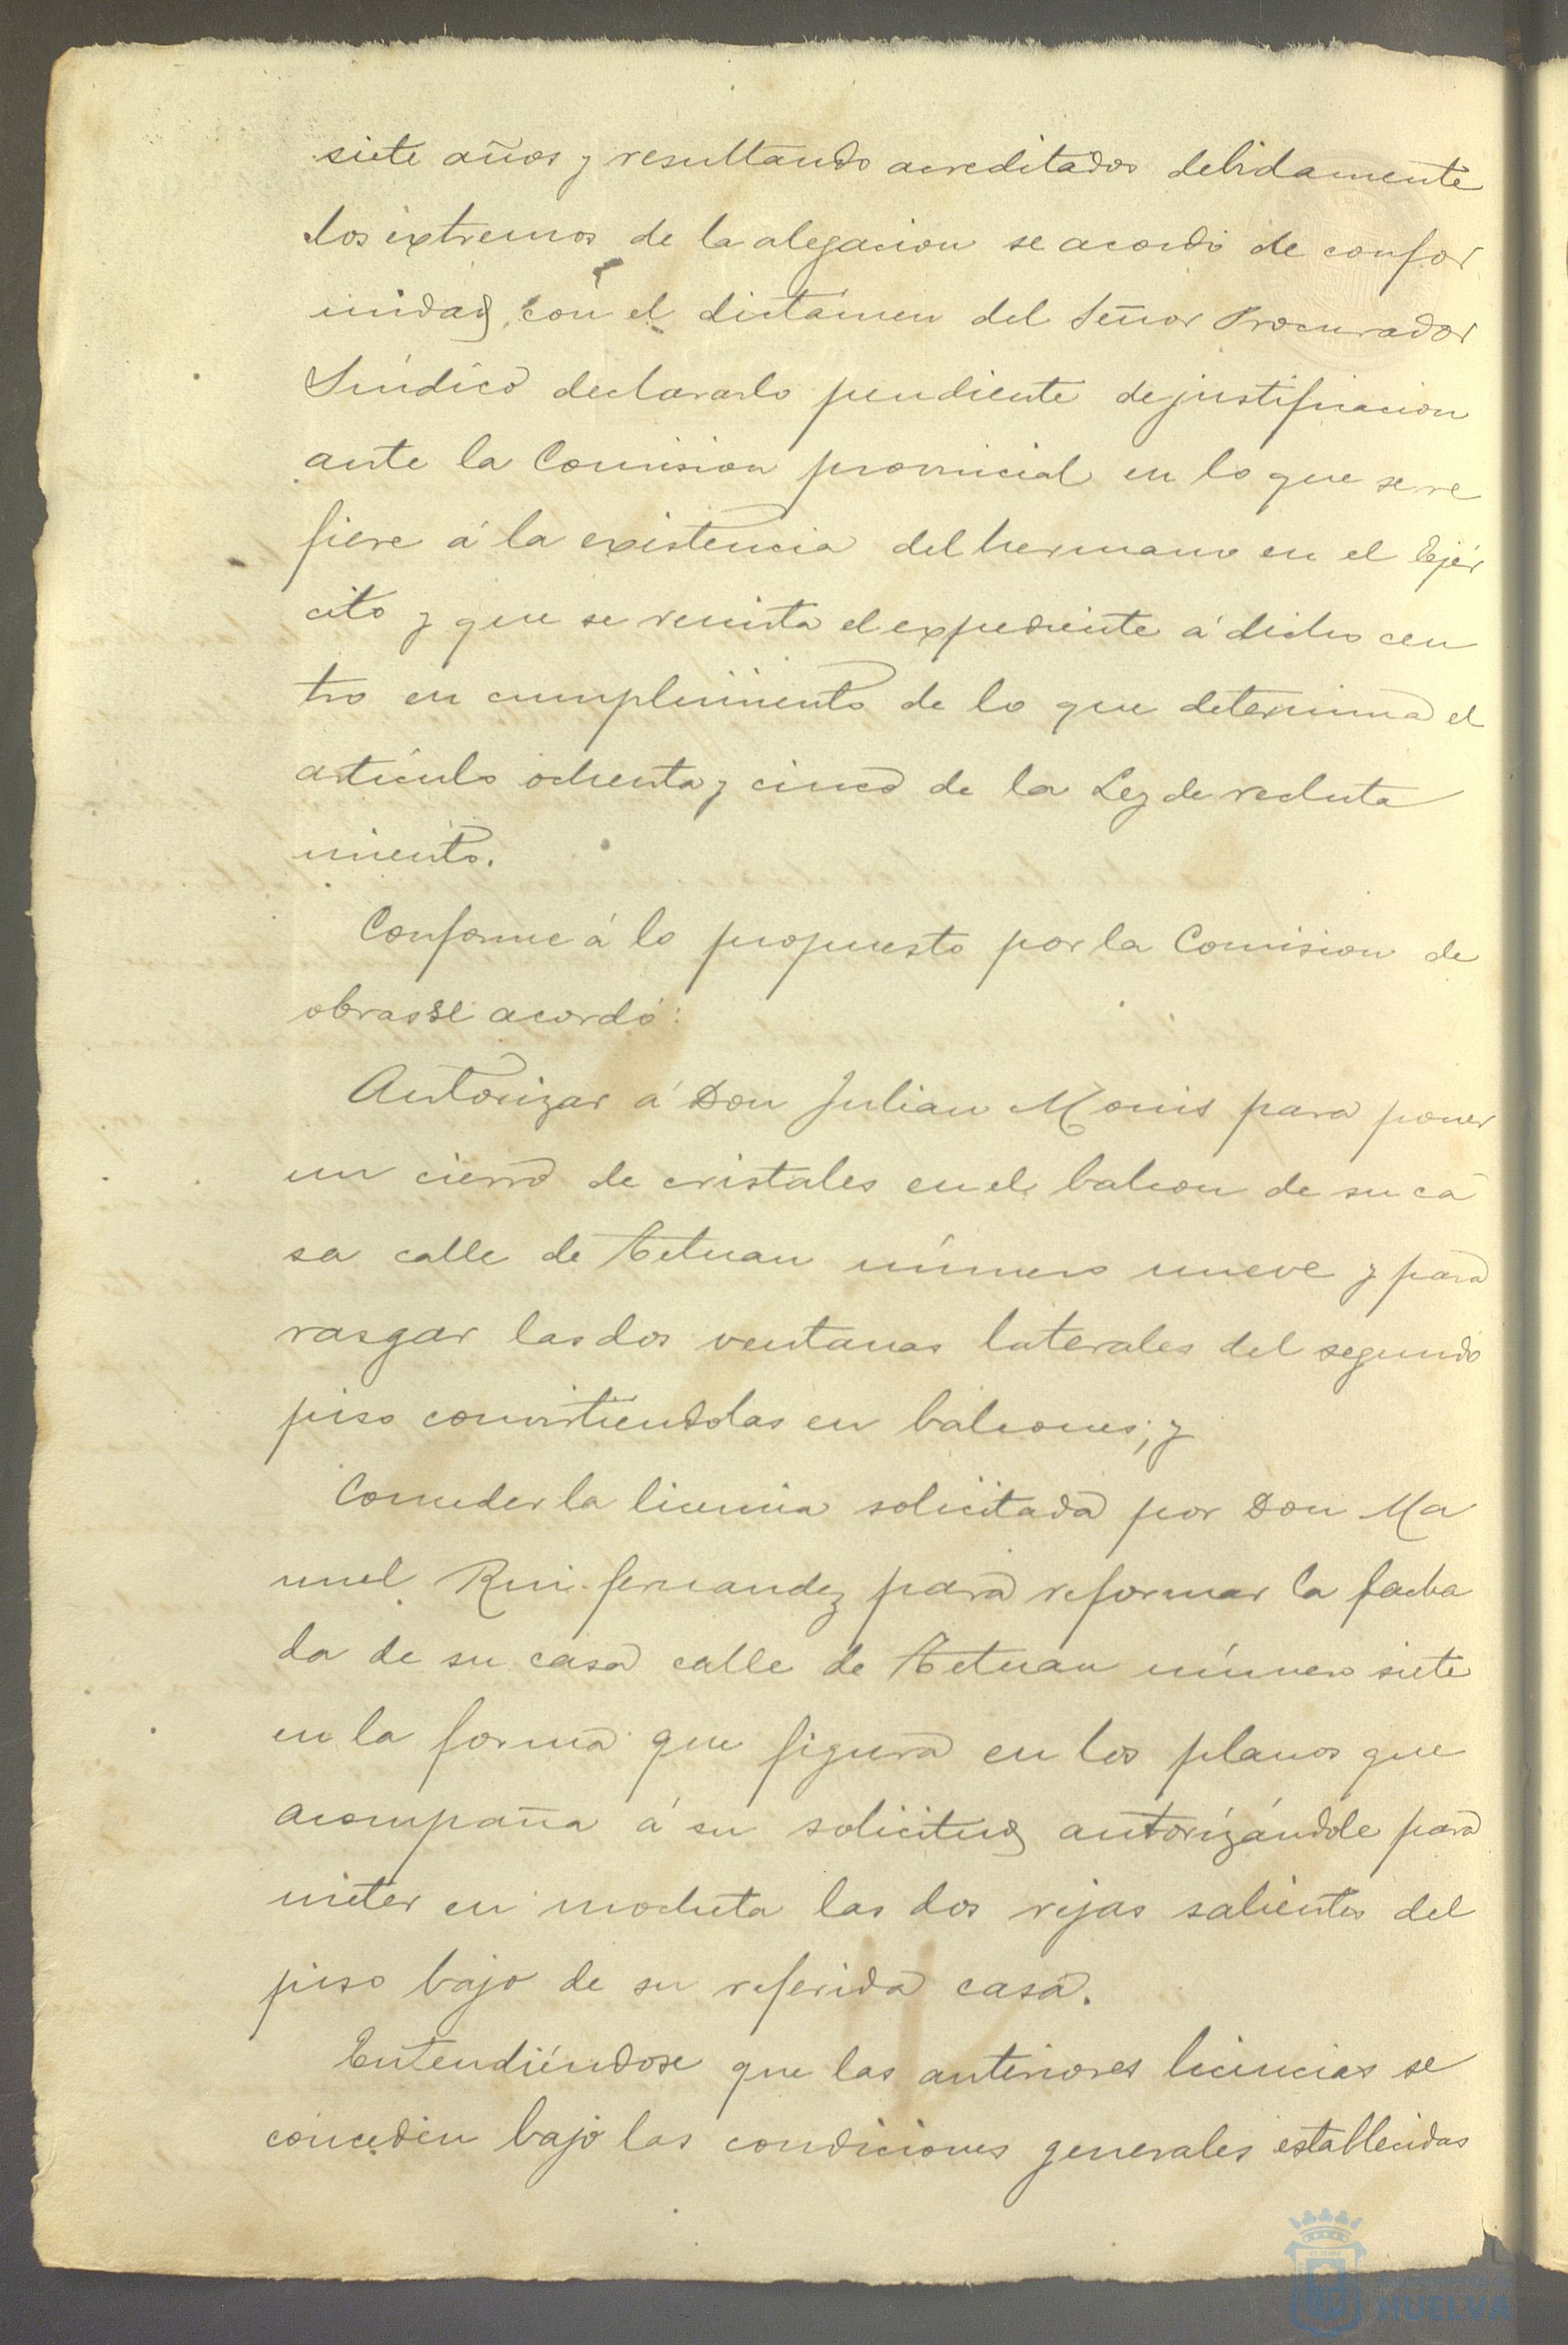 siete años y resultando acreditados debidamente
los extremos de la alegacion se acordó de confor
midad, con el dictámen del Señor Procurador
Síndico declararlo pendiente de justificacion
ante la Comision provincial en lo que se re
fiere á la existencia del hermano en el Ejér
cito y que se remita el expediente á dicho cen
tro en cumplimiento de lo que determina el
artículo ochenta y cinco de la Ley de recluta
miento.
Conforme á lo propuesto por la Comision de
obras se acordó:
Autorizar á Don Julian Monis para poner
un cierro de cristales en el balcon de su ca
sa calle de Tetuan número nueve y para
rasgar las dos ventanas laterales del segundo
piso convirtiendolas en balcones; y
Conceder la licencia solicitada por Don Ma
nuel Rui-fernandez para reformar la facha
da de su casa calle de Tetuan número siete
en la forma que figura en los planos que
acompaña á su solicitud autorizándole para
meter en mocheta las dos rejas salientes del
piso bajo de su referida casa.
Entendiéndose que las anteriores licencias se
conceden bajo las condiciones generales establecidas
HUELVA